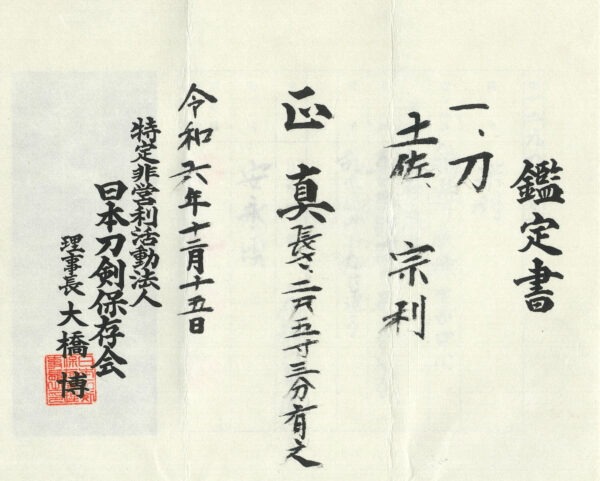 鑑定書
一、刀
土佐、宗利
正真 長さ、二尺五寸三分有之
令和六年十二月十五日
特定非営利活動法人
日本刀剣保存会
理事長 大橋博